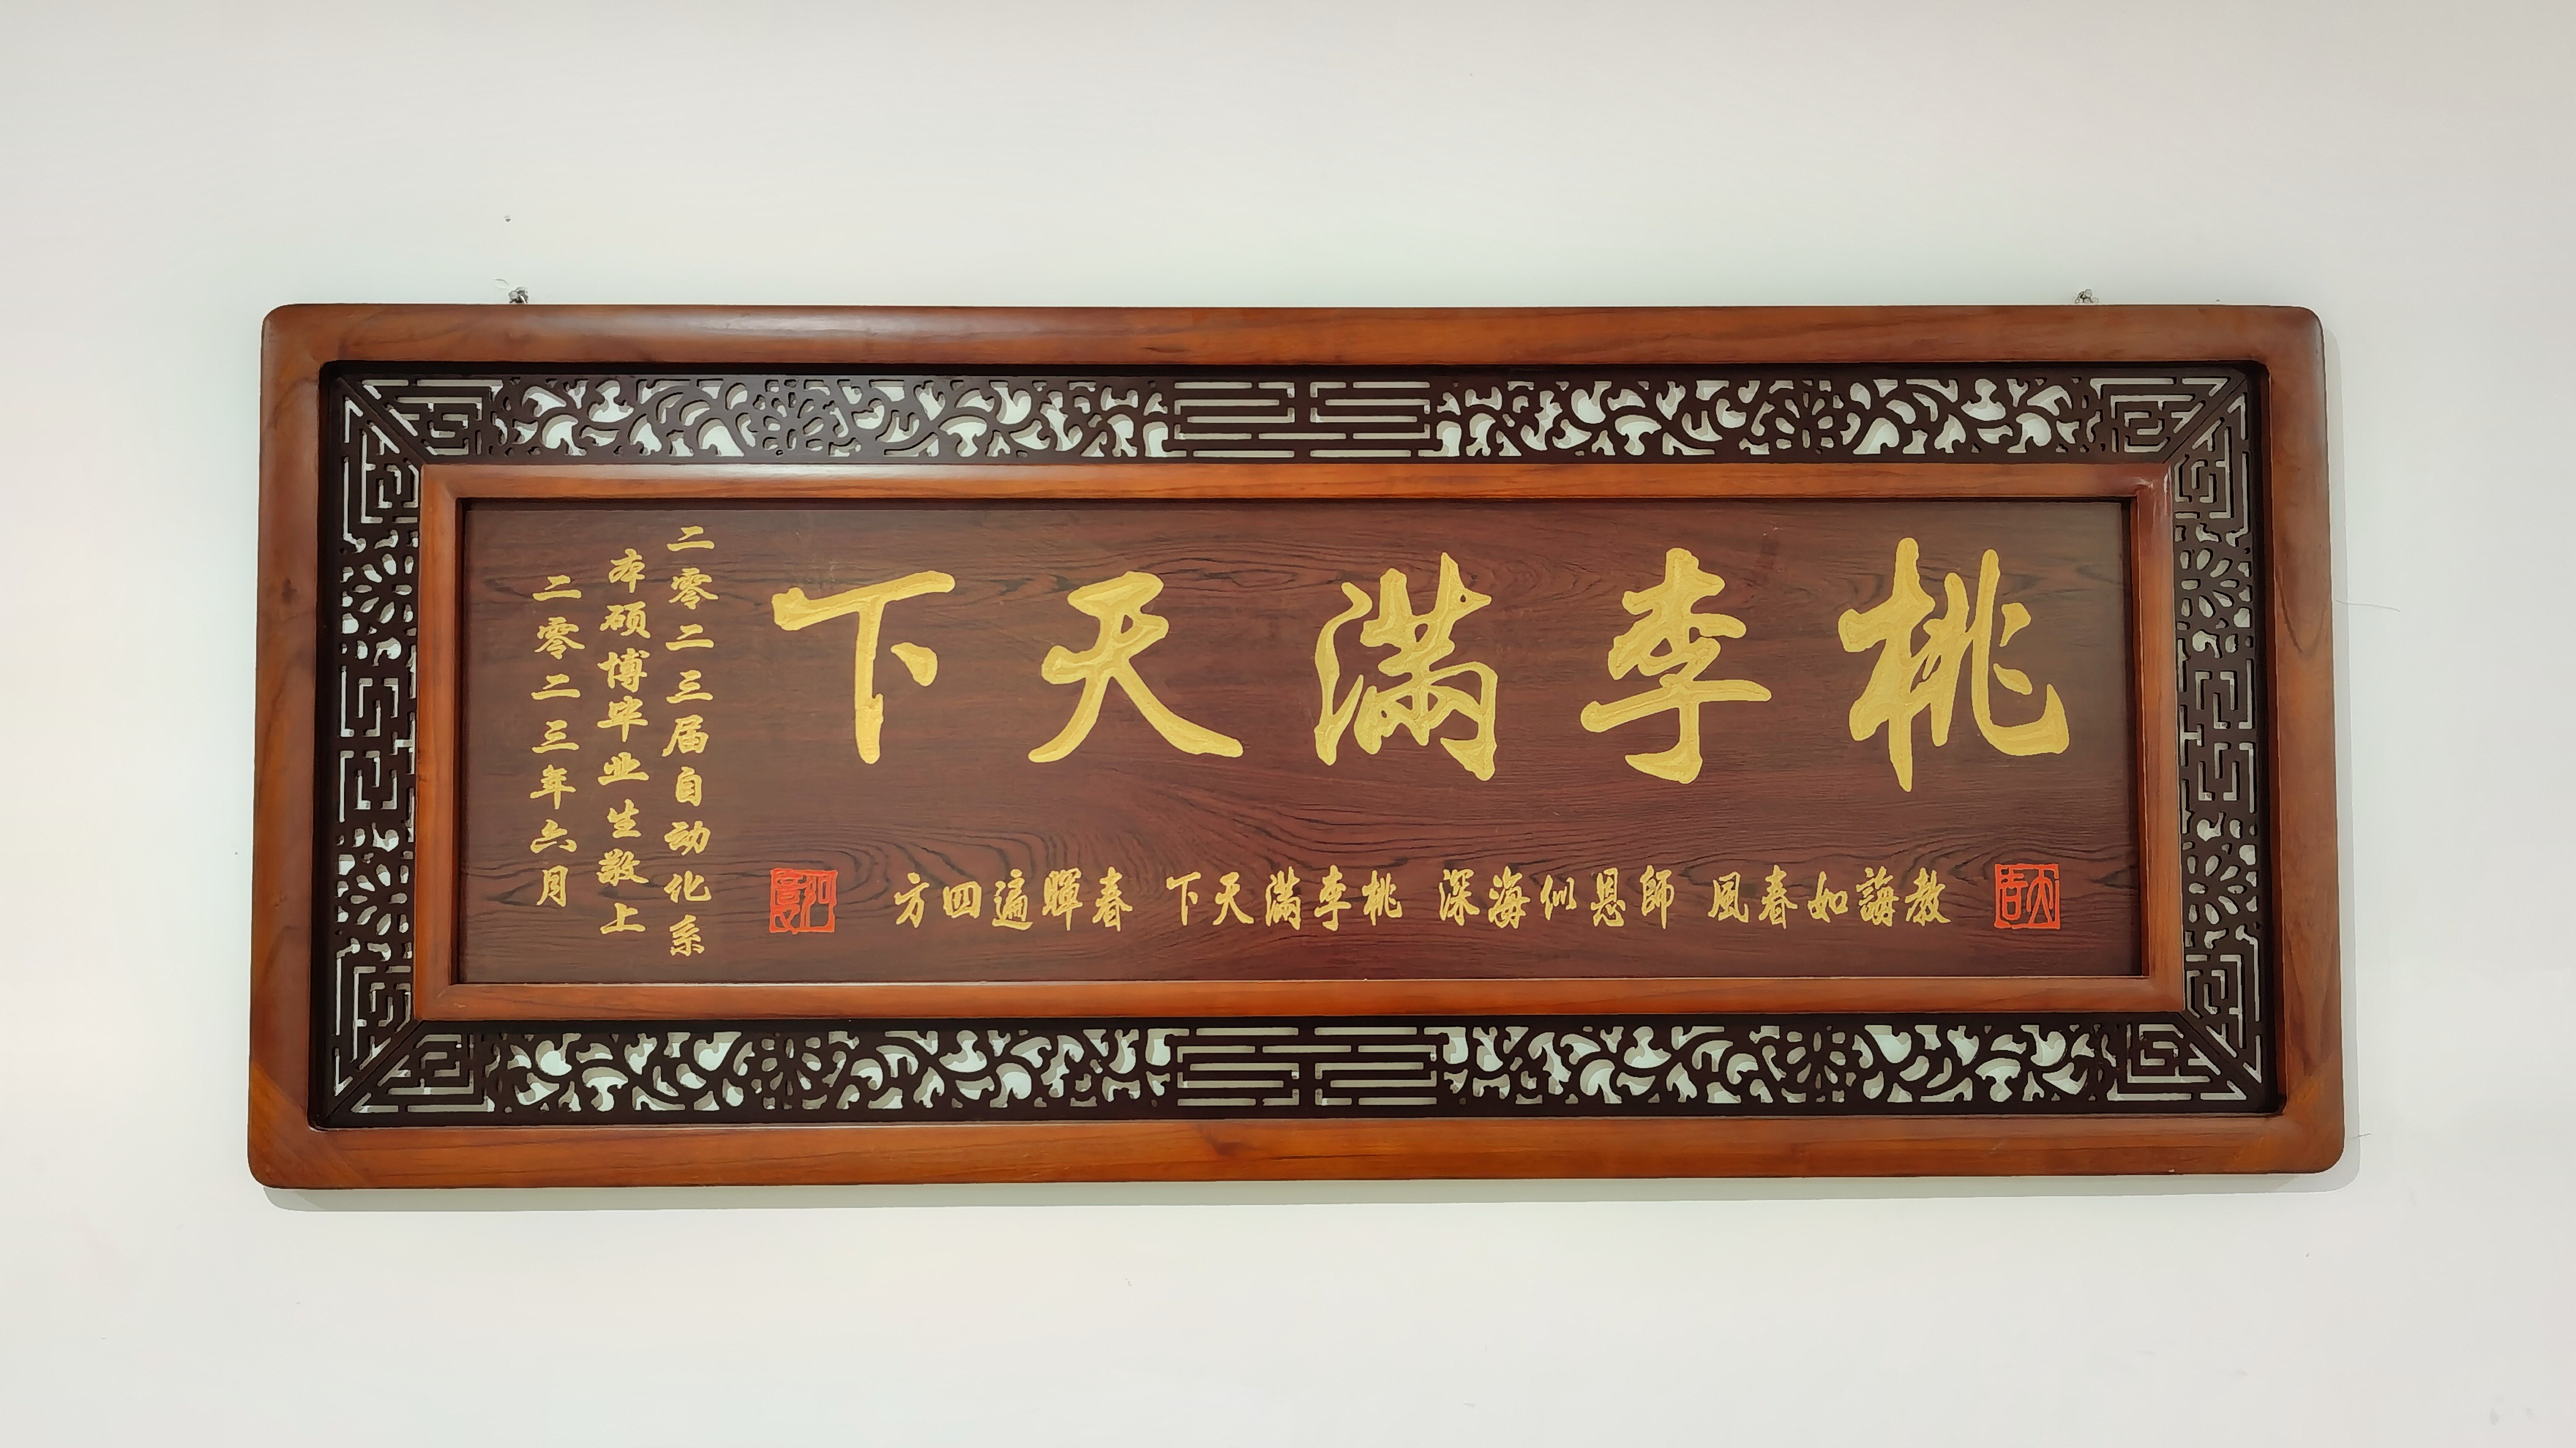 桃李滿天下
教誨如春風 師恩似海深 桃李滿天下 春暉遍四方
二零二三届自动化系
本硕博毕业生敬上
二零二三年六月